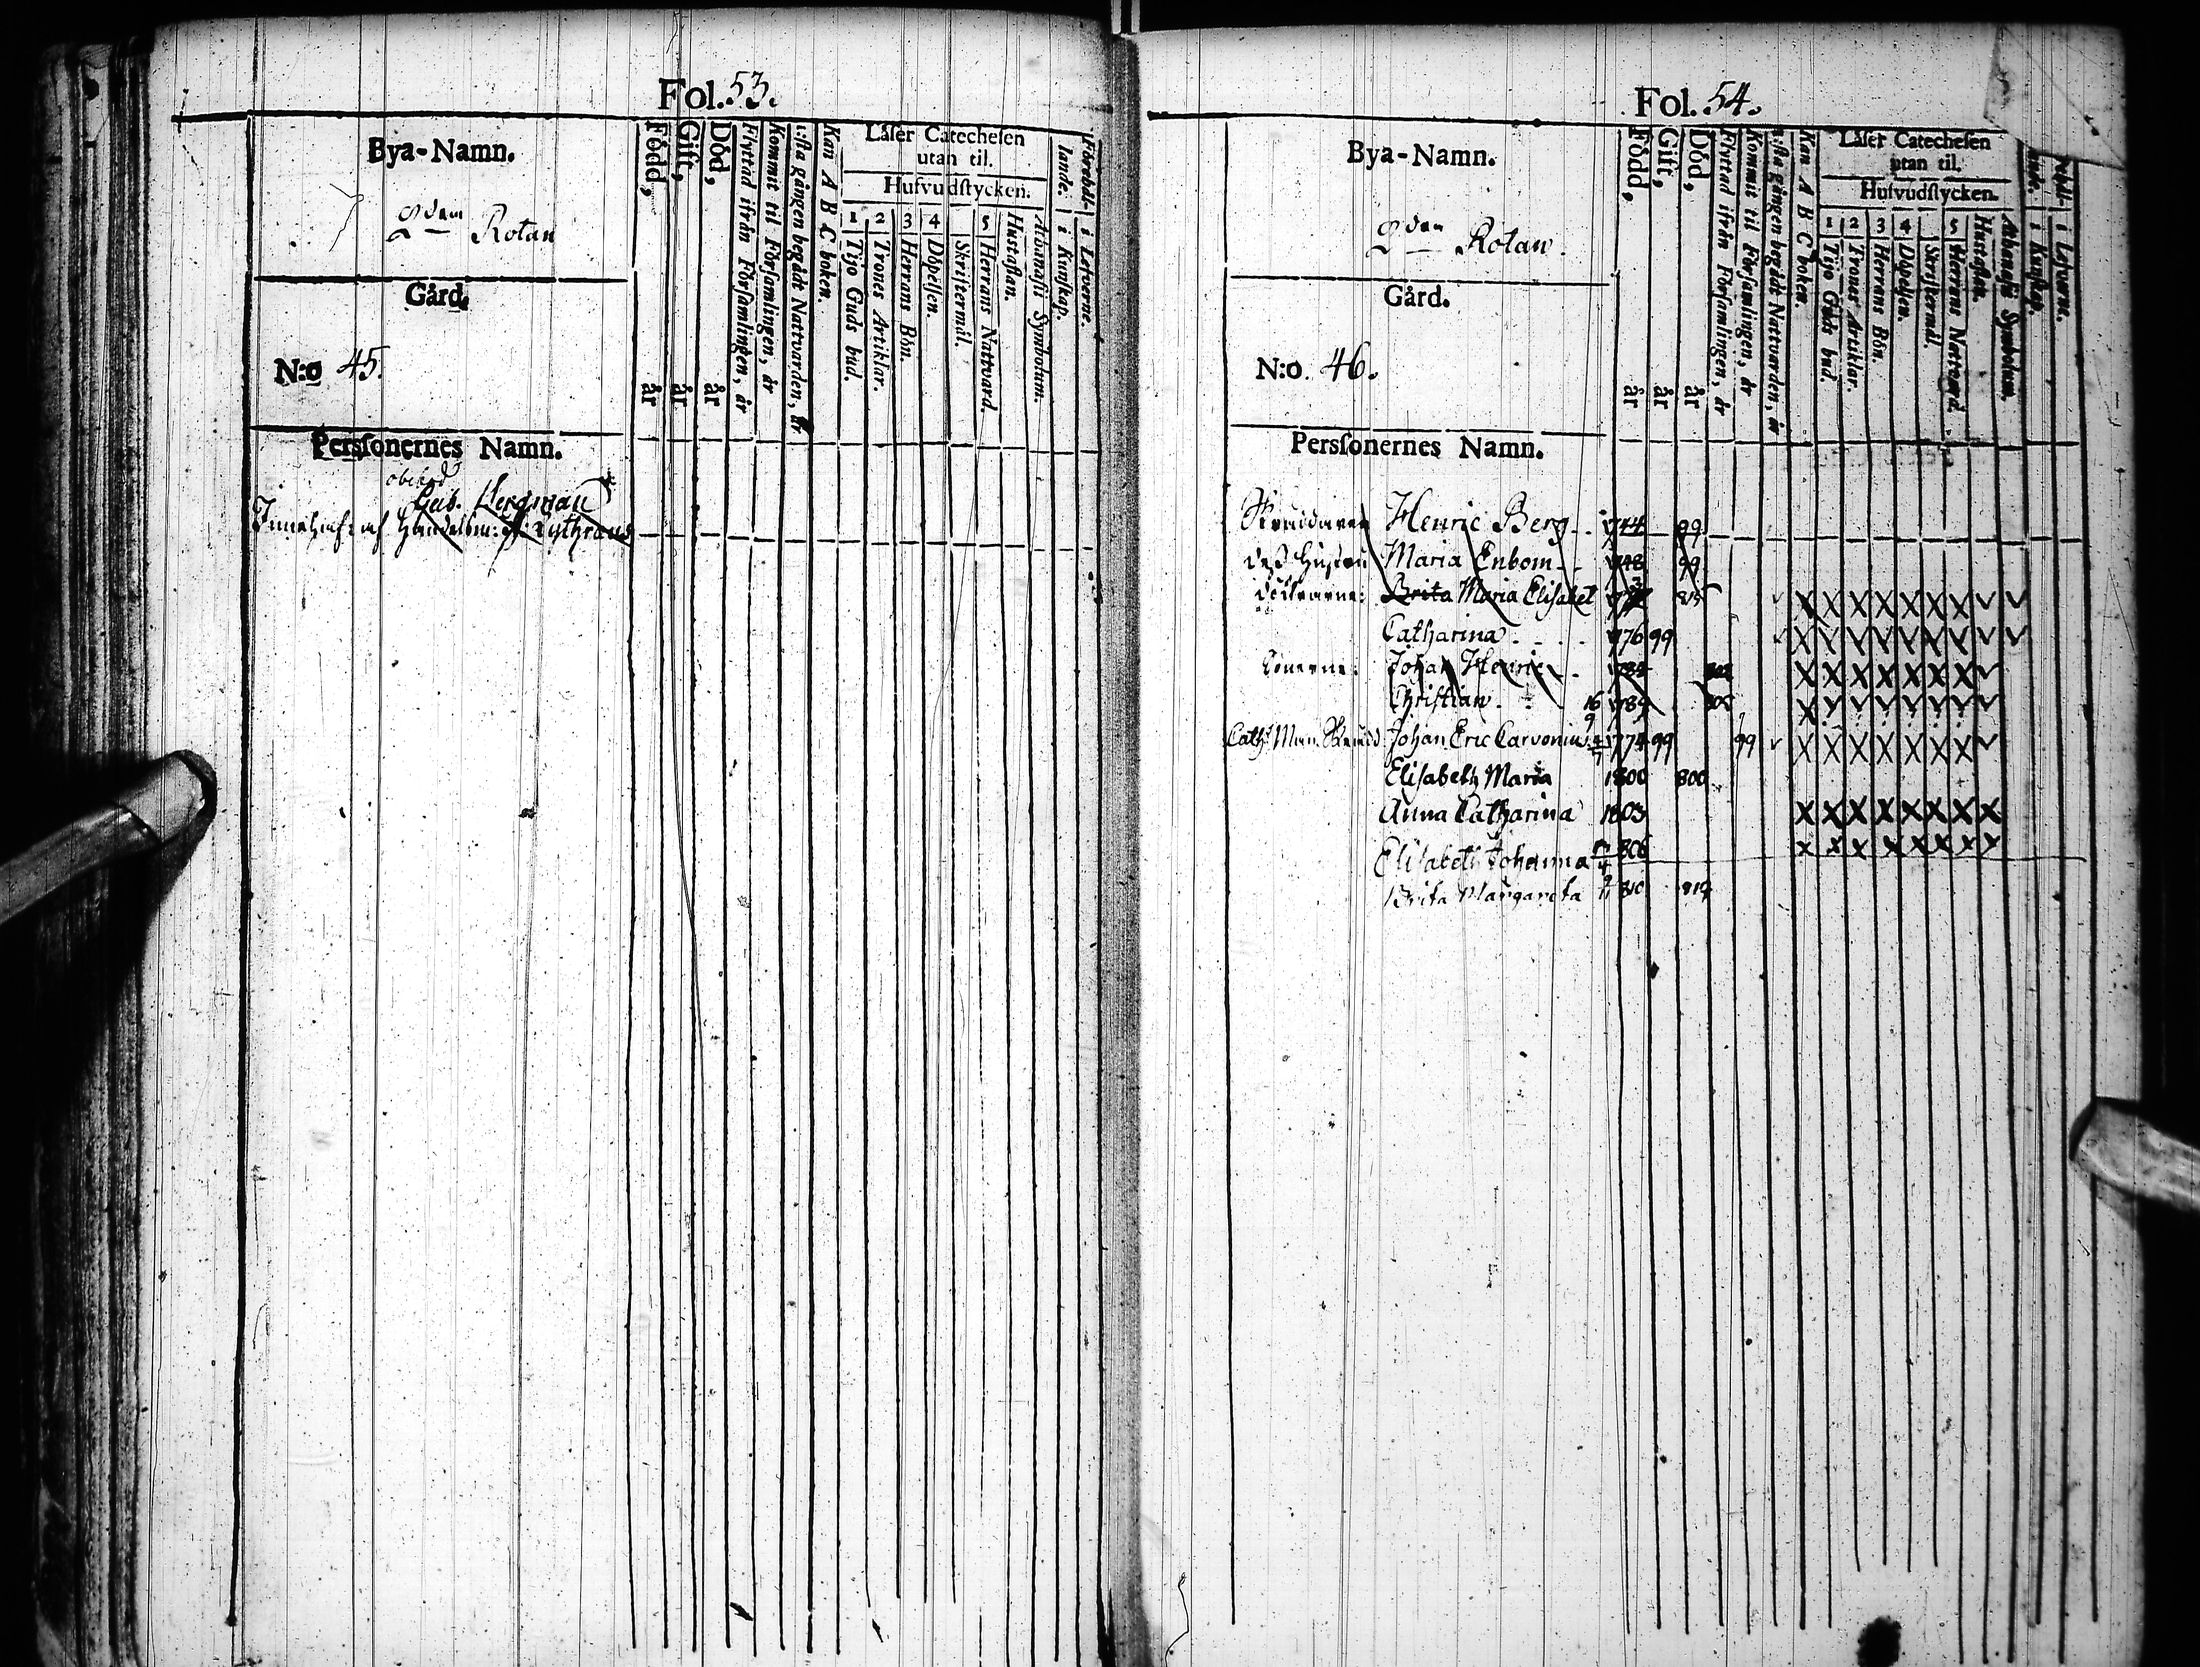 Fol. 53.
Bya-Namn.
2dra Rotan
Gård.
N:o 45.
Perssonernes Namn.
Född, år
Gift, år
Död, år
Flyttad ifrån Församlingen, år
Kommit til Församlingen, år
1:sta gången begådt Nattvarden, år
Kan A B C boken.
Låser Catechesen
utan til.
Hufvudstycken.
1 Tijo Guds bud.
2 Trones Artiklar.
3 Herrans Bön.
4 Döpelsen.
Skriftermål.
5 Herrans Nattvard.
Hustaflan.
Athanasii Symbolum.
Förehål-
lande.
i Kunskap.
i Lefverne.
Bergman
Fol. 54.
Bya-Namn.
2dra Rotan.
Gård.
N:o. 46.
Perssonernes Namn.
Född, år
Gift, år
Död, år
Flyttad ifrån Församlingen, år
Kommit til Församlingen, år
1:sta gången begådt Nattvarden, år
Kan A B C boken.
Låser Catechesen
utan til.
Hufvudstycken.
1 Tijo Guds bud.
2 Trones Artiklar.
3 Herrans Bön.
4 Döpelsen.
Skriftermål.
5 Herrans Nattvard.
Hustaflan.
Athanasii Symbolum.
i Kunskap.
i Lefverne.
Skräddaren Henric Berg 1744 99
dess Hustru Maria Enbom 1748 99
döttrarne: Brita Maria Elisabet 815
Catharina 1776 99
Sönerne: Johan Henric
Christian 16/9 1789
Cath: Man Skrädd: Johan Eric Carvonius 1774 99 99
Elisabeth Maria 1800 800
Anna Catharina 1803
Elisabeth Johanna 806
Brita Margareta 9/11 810 819